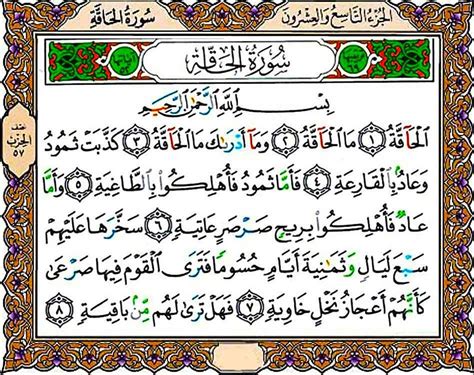 سُورَةُ الحَاقَّةِ
الجُزْءُ التَّاسِعُ وَالعِشْرُونَ
سُورَةُ الحَاقَّةِ
بِسْمِ ٱللَّهِ ٱلرَّحْمَٰنِ ٱلرَّحِيمِ
ٱلْحَاقَّةُ ١ مَا ٱلْحَاقَّةُ ٢ وَمَآ أَدْرَىٰكَ مَا ٱلْحَاقَّةُ ٣ كَذَّبَتْ ثَمُودُ
وَعَادٌۢ بِٱلْقَارِعَةِ ٤ فَأَمَّا ثَمُودُ فَأُهْلِكُوا۟ بِٱلطَّاغِيَةِ ٥ وَأَمَّا
عَادٌ فَأُهْلِكُوا۟ بِرِيحٍ صَرْصَرٍ عَاتِيَةٍ ٦ سَخَّرَهَا عَلَيْهِمْ
سَبْعَ لَيَالٍ وَثَمَٰنِيَةَ أَيَّامٍ حُسُومًا فَتَرَى ٱلْقَوْمَ فِيهَا صَرْعَىٰ
كَأَنَّهُمْ أَعْجَازُ نَخْلٍ خَاوِيَةٍ ٧ فَهَلْ تَرَىٰ لَهُم مِّنۢ بَاقِيَةٍ ٨
الحِزْب
٥٧